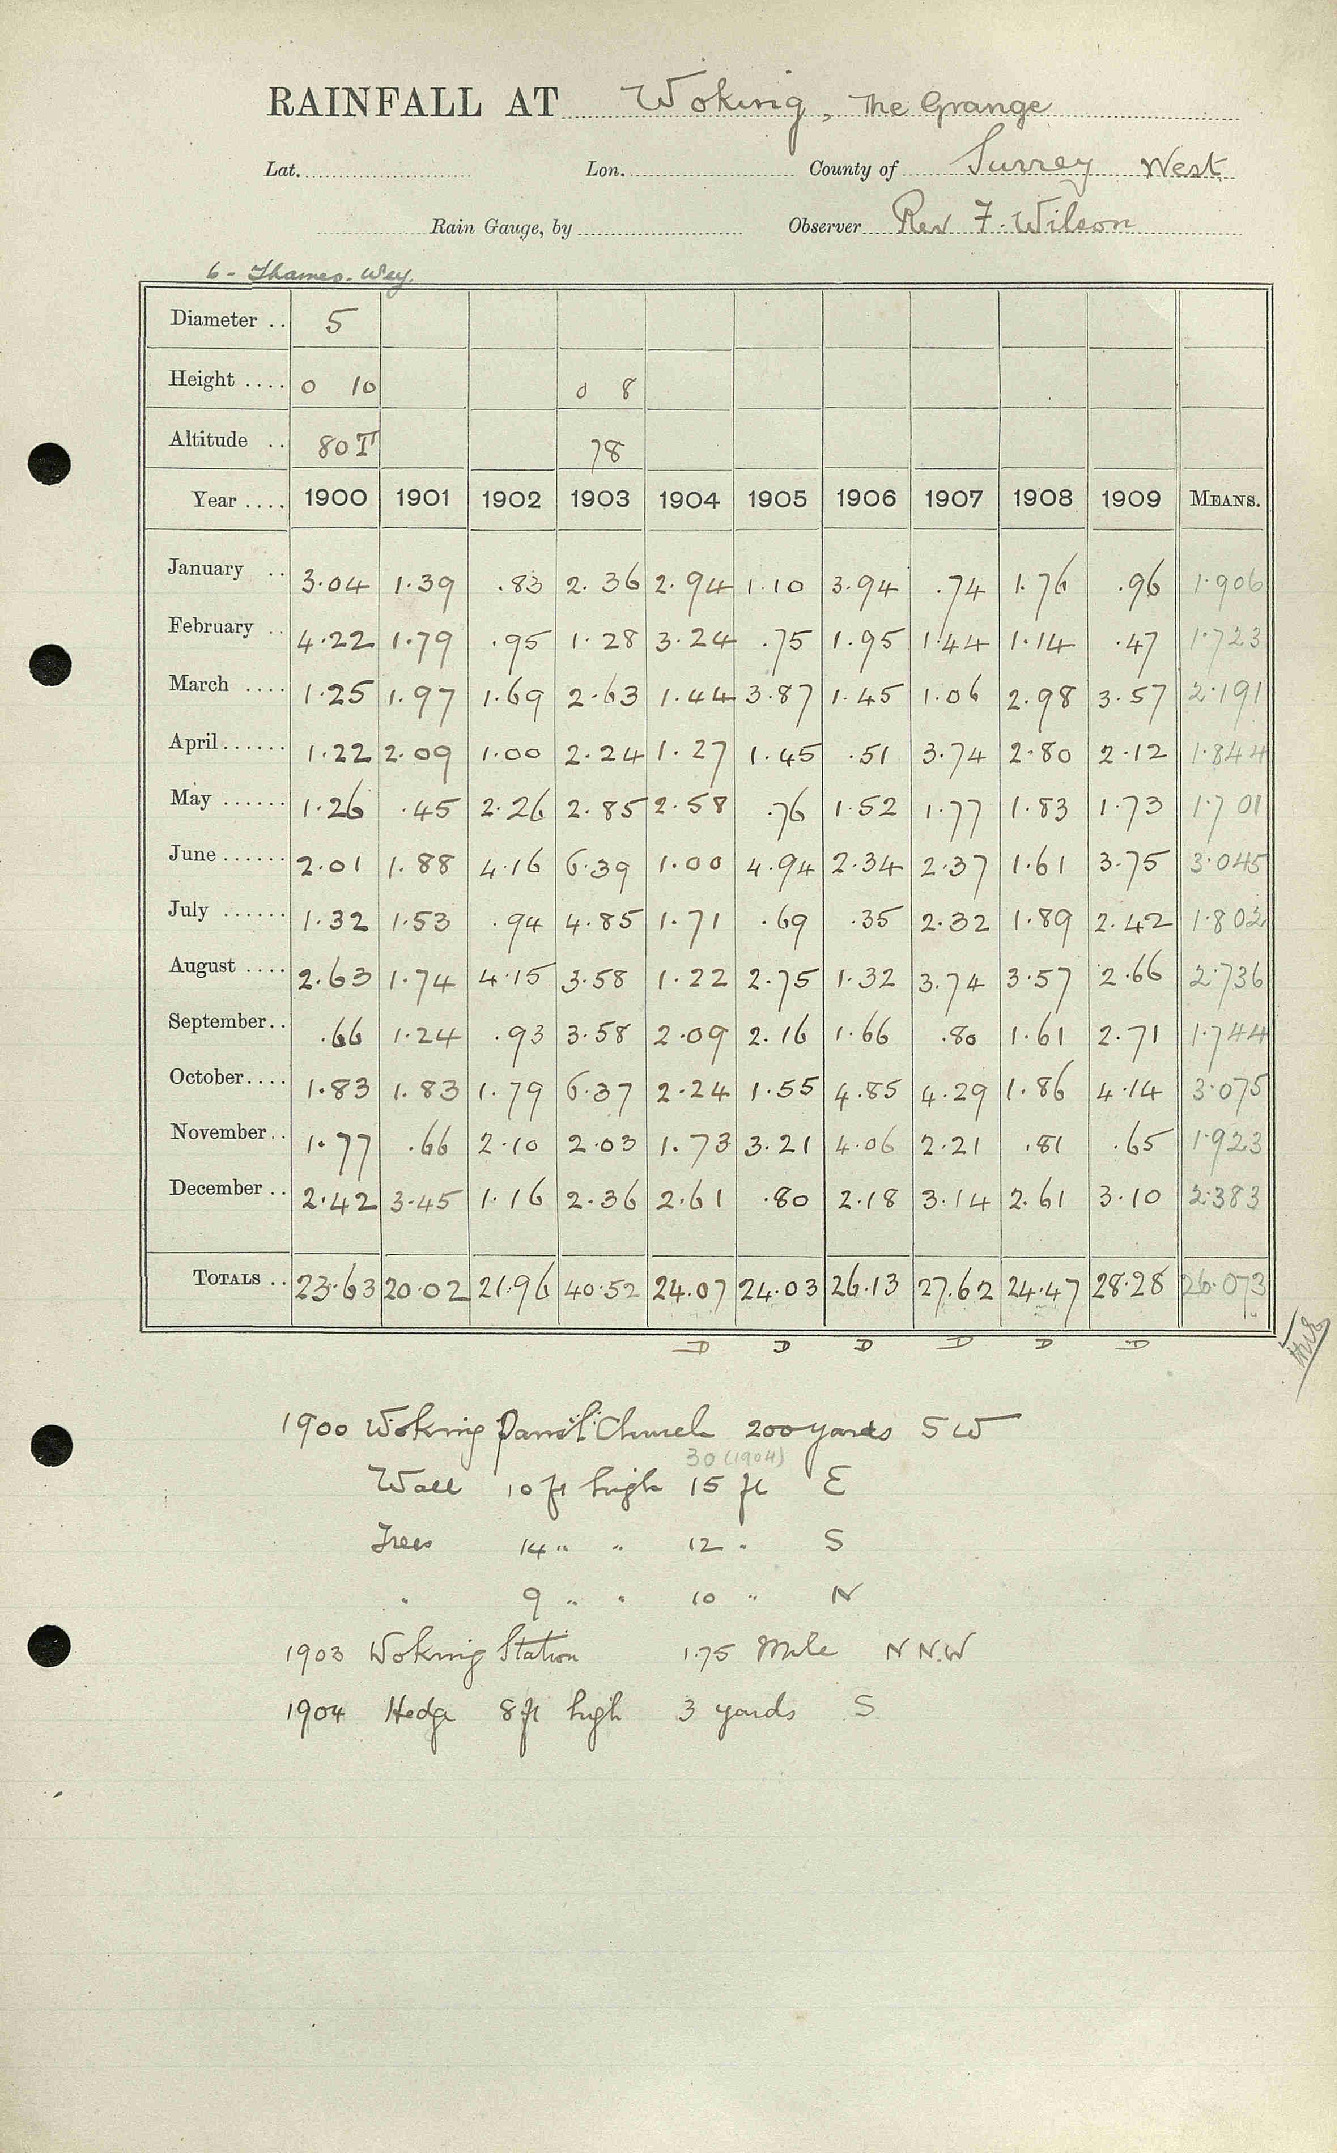 RAINFALL AT Woking, The Grange
Lat. Lon. County of Surrey West
Rain Gauge, by Observer Rev F. Wilson
6 - Thames. Wey.
Diameter .. 5
Height .... 0 10 0 8
Altitude .. 80 T 78
Year .... 1900 1901 1902 1903 1904 1905 1906 1907 1908 1909 MEANS.
January .. 3.04 1.39 .83 2.36 2.94 1.10 3.94 .74 1.76 .96 1.906
February .. 4.22 1.79 .95 1.28 3.24 .75 1.95 1.44 1.14 .47 1.723
March .... 1.25 1.97 1.69 2.63 1.44 3.87 1.45 1.06 2.98 3.57 2.191
April...... 1.22 2.09 1.00 2.24 1.27 1.45 .51 3.74 2.80 2.12 1.844
May ...... 1.26 .45 2.26 2.85 2.58 .76 1.52 1.77 1.83 1.73 1.701
June ...... 2.01 1.88 4.16 6.39 1.00 4.94 2.34 2.37 1.61 3.75 3.045
July ...... 1.32 1.53 .94 4.85 1.71 .69 .35 2.32 1.89 2.42 1.802
August .... 2.63 1.74 4.15 3.58 1.22 2.75 1.32 3.74 3.57 2.66 2.736
September.. .66 1.24 .93 3.58 2.09 2.16 1.66 .80 1.61 2.71 1.744
October.... 1.83 1.83 1.79 6.37 2.24 1.55 4.85 4.29 1.86 4.14 3.075
November.. 1.77 .66 2.10 2.03 1.73 3.21 4.06 2.21 .81 .65 1.923
December .. 2.42 3.45 1.16 2.36 2.61 .80 2.18 3.14 2.61 3.10 2.383
TOTALS .. 23.63 20.02 21.96 40.52 24.07 24.03 26.13 27.62 24.47 28.28 26.073
D D D D D D
1900 Woking Parish Church 200 yards S W
30 (1904)
Wall 10 ft high 15 ft E
Trees 14 " " 12 " S
" 9 " " 10 " N
1903 Woking Station 1.75 Mile N N.W
1904 Hedge 8 ft high 3 yards S